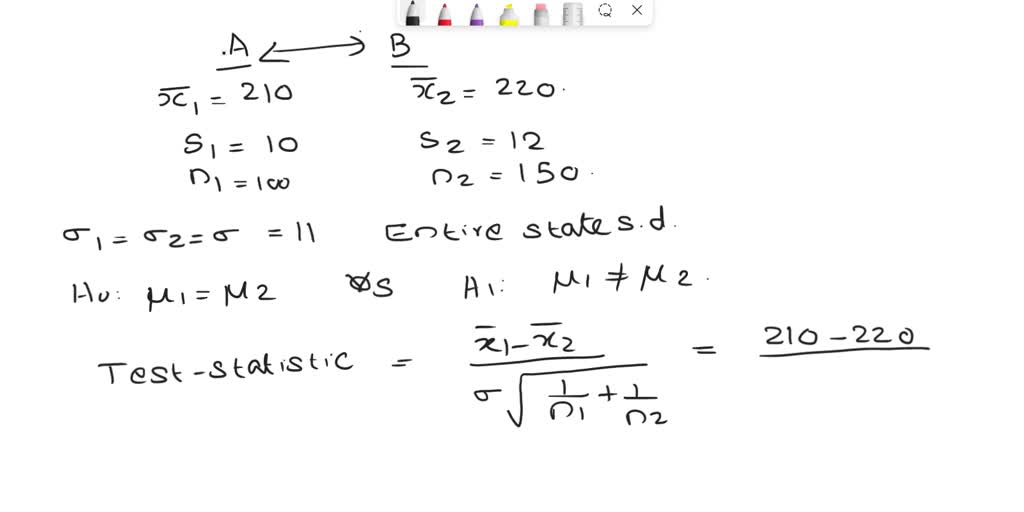 .A ⟷ B
x̄₁ = 210 x̄₂ = 220.
S₁ = 10 S₂ = 12
n₁ = 100 n₂ = 150.
σ₁ = σ₂ = σ = 11 Entire state s.d.
H₀: μ₁ = μ2 VS H₁: μ₁ ≠ μ2.
Test-statistic = (x̄₁ - x̄₂) / (σ √(1/n₁ + 1/n₂)) = 210 - 220